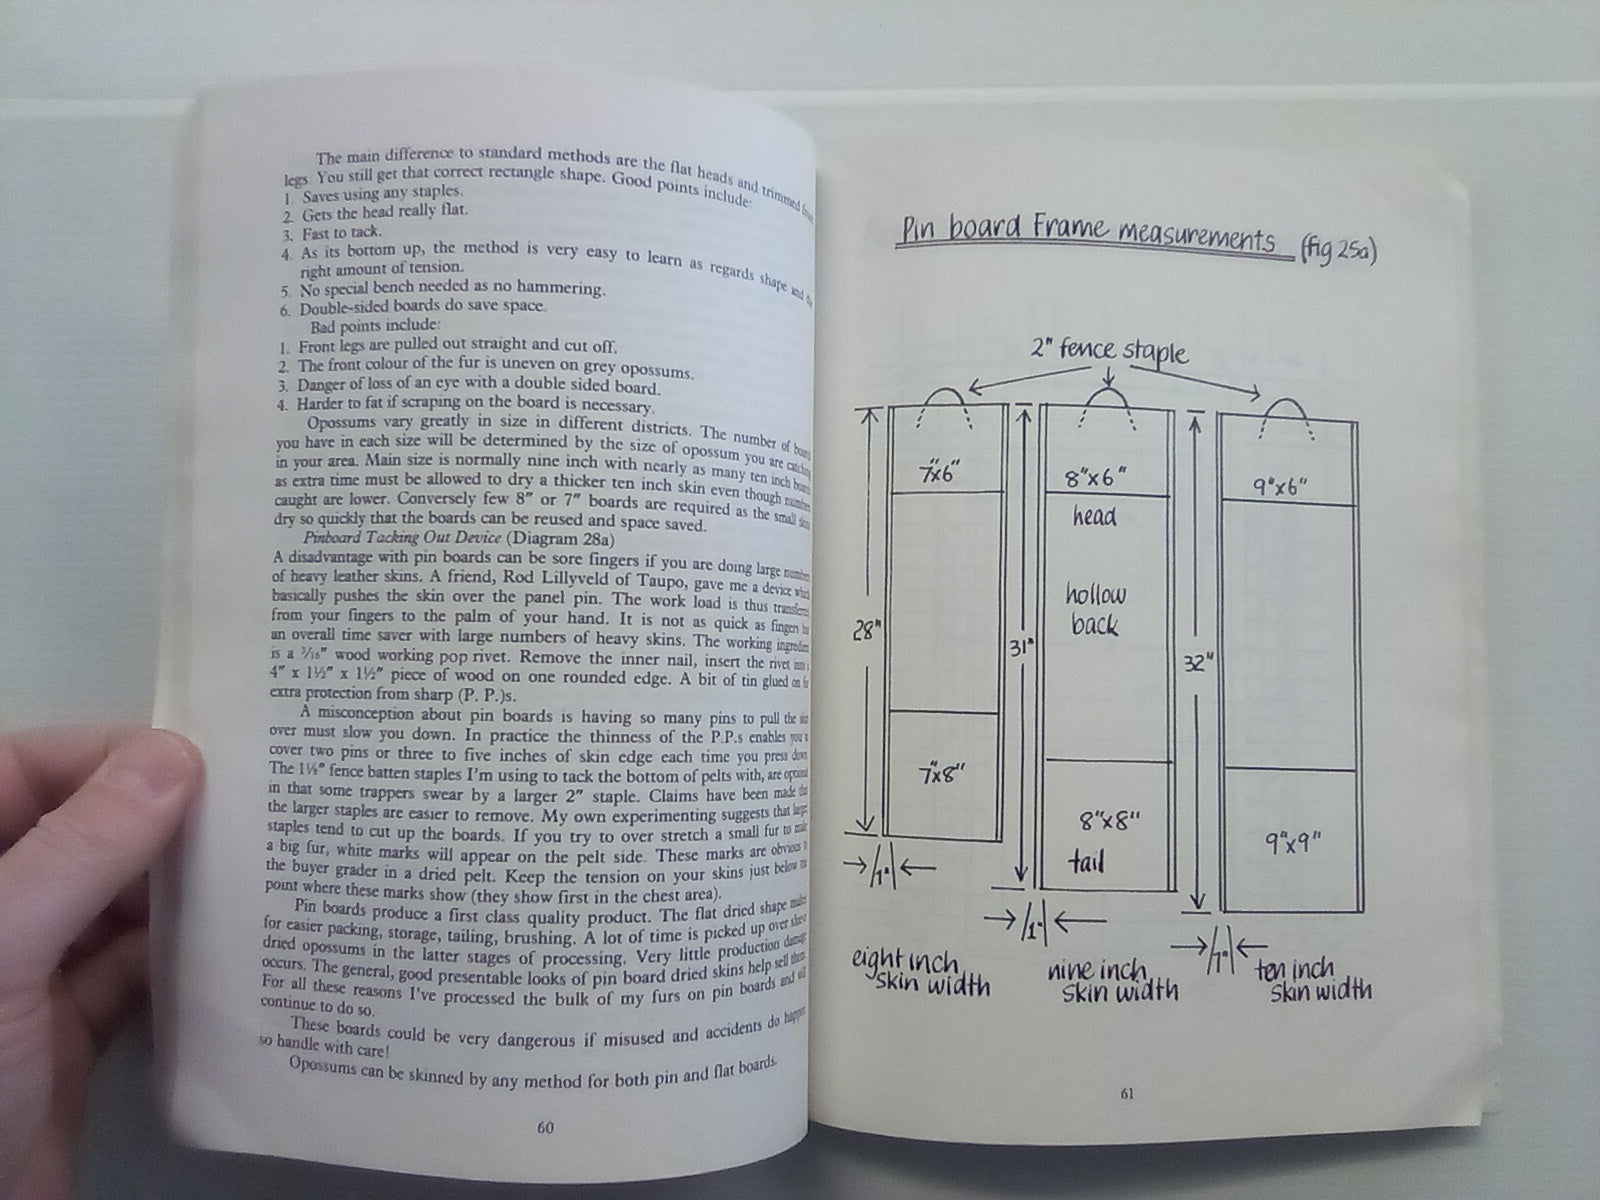 The main difference to standard methods are the flat heads and trimmed front
legs. You still get that correct rectangle shape. Good points include:
1. Saves using any staples.
2. Gets the head really flat.
3. Fast to tack.
4. As its bottom up, the method is very easy to learn as regards shape and the
right amount of tension.
5. No special bench needed as no hammering.
6. Double-sided boards do save space.
Bad points include:
1. Front legs are pulled out straight and cut off.
2. The front colour of the fur is uneven on grey opossums.
3. Danger of loss of an eye with a double sided board.
4. Harder to fat if scraping on the board is necessary.
Opossums vary greatly in size in different districts. The number of boards
you have in each size will be determined by the size of opossum you are catching
in your area. Main size is normally nine inch with nearly as many ten inch boards
as extra time must be allowed to dry a thicker ten inch skin even though numbers
caught are lower. Conversely few 8" or 7" boards are required as the small skins
dry so quickly that the boards can be reused and space saved.
Pinboard Tacking Out Device (Diagram 28a)
A disadvantage with pin boards can be sore fingers if you are doing large numbers
of heavy leather skins. A friend, Rod Lillyveld of Taupo, gave me a device which
basically pushes the skin over the panel pin. The work load is thus transferred
from your fingers to the palm of your hand. It is not as quick as fingers but
an overall time saver with large numbers of heavy skins. The working ingredient
is a 3/16" wood working pop rivet. Remove the inner nail, insert the rivet into a
4" x 1½" x 1½" piece of wood on one rounded edge. A bit of tin glued on for
extra protection from sharp (P. P.)s.
A misconception about pin boards is having so many pins to pull the skin
over must slow you down. In practice the thinness of the P.P.s enables you to
cover two pins or three to five inches of skin edge each time you press down.
The 1⅛" fence batten staples I'm using to tack the bottom of pelts with, are optional
in that some trappers swear by a larger 2" staple. Claims have been made that
the larger staples are easier to remove. My own experimenting suggests that larger
staples tend to cut up the boards. If you try to over stretch a small fur to make
a big fur, white marks will appear on the pelt side. These marks are obvious to
the buyer grader in a dried pelt. Keep the tension on your skins just below the
point where these marks show (they show first in the chest area).
Pin boards produce a first class quality product. The flat dried shape makes
for easier packing, storage, tailing, brushing. A lot of time is picked up over
dried opossums in the latter stages of processing. Very little production damage
occurs. The general, good presentable looks of pin board dried skins help sell them.
For all these reasons I've processed the bulk of my furs on pin boards and will
continue to do so.
These boards could be very dangerous if misused and accidents do happen
so handle with care!
Opossums can be skinned by any method for both pin and flat boards.
60
Pin board Frame measurements (fig 25a)
2" fence staple
7"x6"
8"x6"
9"x6"
head
hollow
back
28"
31"
32"
7"x8"
8"x8"
9"x9"
tail
1"
1"
1"
eight inch
skin width
nine inch
skin width
ten inch
skin width
61